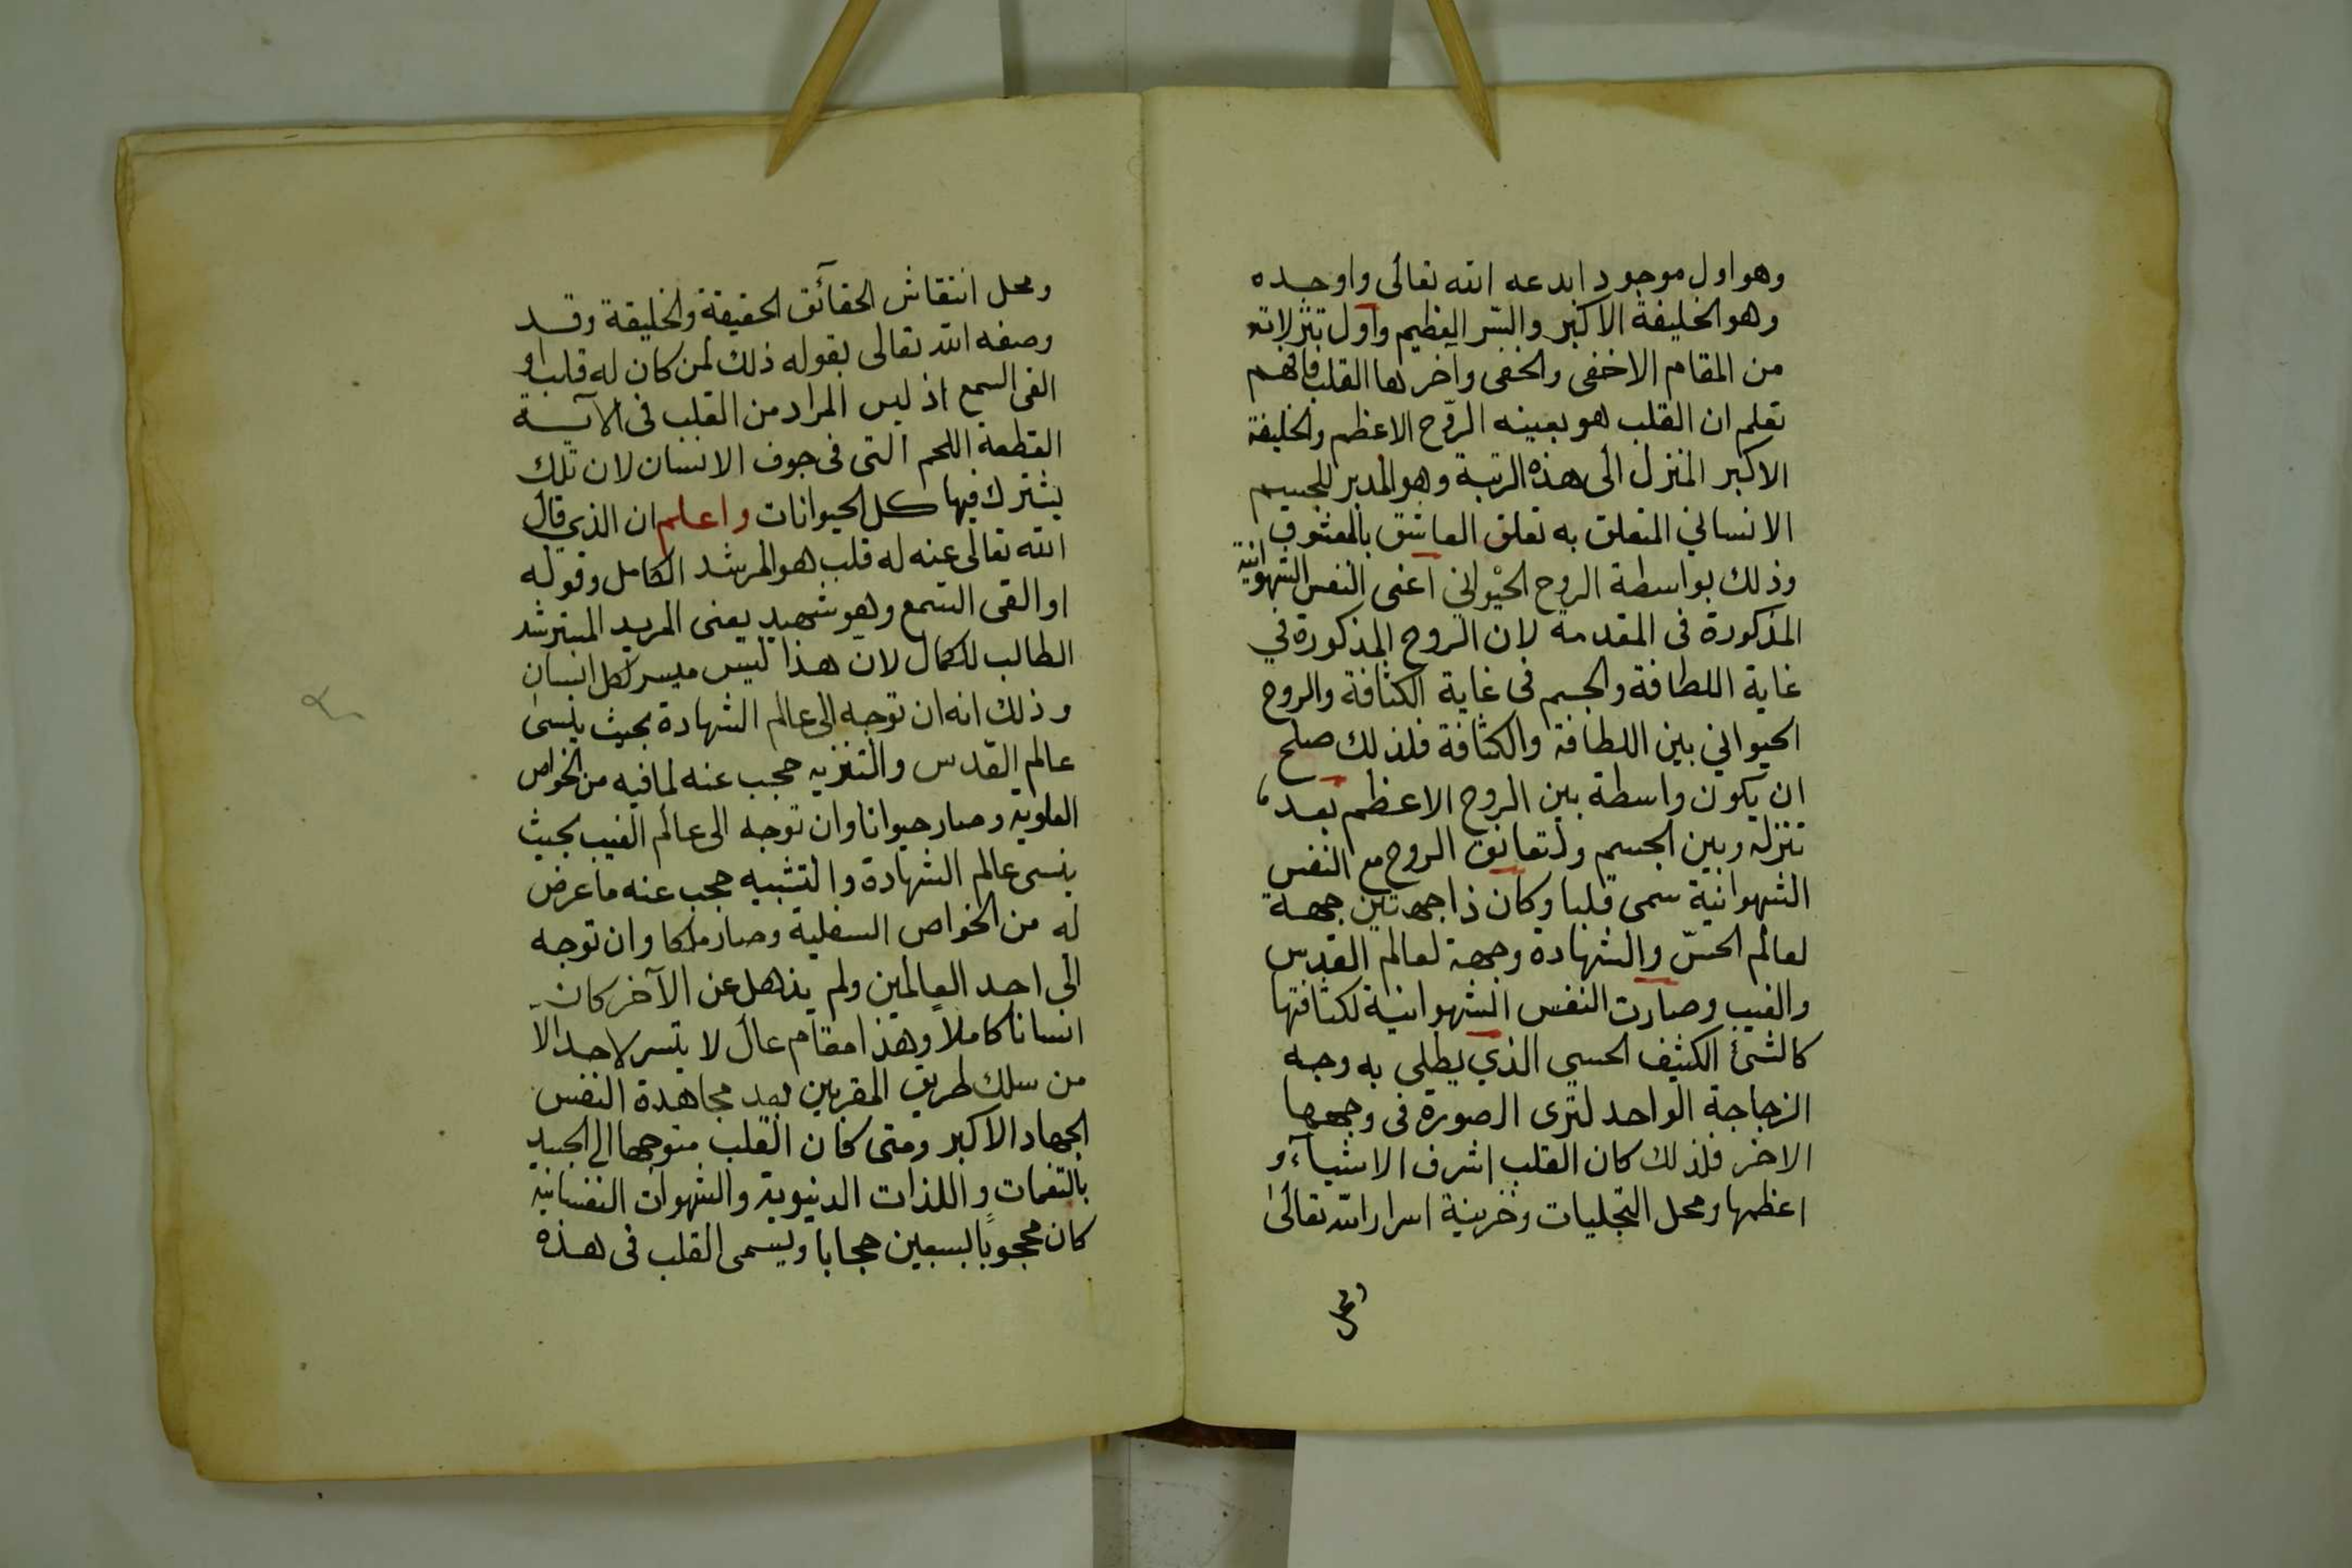 وهو اول موجود ابدعه الله تعالى واوجده
وهو الخليفة الاكبر والسّر العظيم واول تنزلاته
من المقام الاخفى والخفى وآخرها القلب فافهم
تعلم ان القلب هو بعينه الرّوح الاعظم والخليفة
الاكبر المنزل الى هذه الرتبة وهو المدبر للجسم
الانساني المتعلق به تعلق العاشق بالمعشوق
وذلك بواسطة الروح الحيواني اعنى النفس الشهوانية
المذكورة فى المقدمة لان الروح المذكورة في
غاية اللطافة والجسم فى غاية الكثافة والروح
الحيواني بين اللطافة والكثافة فلذلك صلح
ان يكون واسطة بين الروح الاعظم بعد
تنزله وبين الجسم ولتعانق الروح مع النفس
الشهوانية سمى قلبا وكان ذا جهتين جهة
لعالم الحسّ والشهادة وجهة لعالم القدس
والغيب وصارت النفس الشهوانية لكثافتها
كالشئ الكثيف الحسي الذي يطلى به وجه
الزجاجة الواحد لترى الصورة فى وجهها
الاخر فلذلك كان القلب اشرف الاشياء و
اعظمها ومحل التجليات وخزينة اسرار الله تعالىٰ
ومحل
ومحل انتقاش الحقائق الحقيقة والخليقة وقد
وصفه الله تعالى بقوله ذلك لمن كان له قلب او
القى السمع اذ ليس المراد من القلب فى الآية
القطعة اللحم التى فى جوف الانسان لان تلك
يشترك فيها كل الحيوانات واعلم ان الذي قال
الله تعالى عنه له قلب هو المرشد الكامل وقوله
او القى السمع وهو شهيد يعنى المريد المسترشد
الطالب للكمال لان هذا ليس ميسر لكل انسان
وذلك انه ان توجه الى عالم الشهادة بحيث ينسى
عالم القدس والتنزيه حجب عنه لما فيه من الخواص
العلويه وصار حيوانا وان توجه الى عالم الغيب بحيث
ينسى عالم الشهادة والتشبيه حجب عنه ما عرض
له من الخواص السفلية وصار ملكا وان توجه
الى احد العالمين ولم يذهل عن الآخر كان
انسانا كاملا وهذا مقام عال لا يتسر لاحد الّا
من سلك طريق المقربين بعد مجاهدة النفس
الجهاد الاكبر ومتى كان القلب متوجها الى الجسد
بالنغمات واللذات الدنيوية والشهوات النفسانية
كان محجوباً بسبعين حجابا ويسمى القلب فى هذه